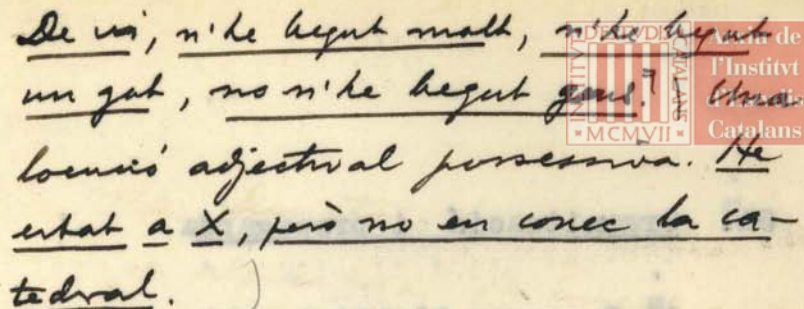 De vi, n'he begut molt, n'he begut
un got, no n'he begut gens. - Una
locució adjectival possessiva. He
estat a X, però no en conec la ca-
tedral.
INSTITVT D'ESTVDIS CATALANS
MCMVII
Arxiu de
l'Institvt
d'Estudis
Catalans